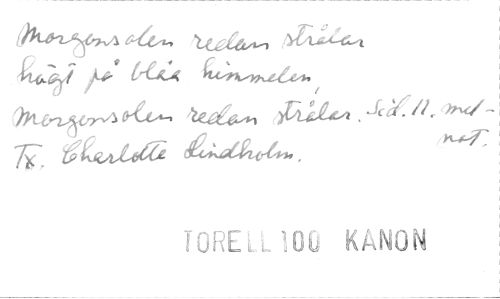 Morgonsolen redan strålar
högt på blåa himmelen,
Morgonsolen redan strålar. Sid. 11. mel-
not.
Tx. Charlotte Lindholm.
TORELL 100 KANON